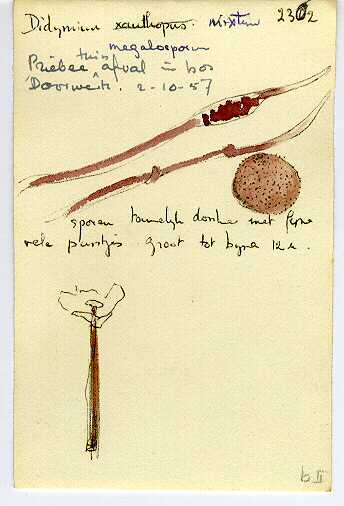 Didymium xanthopus. 2302
megalosporum
tuin
Priebee afval in bos
Doorwerth. 2-10-57
sporen tamelijk donker met fijne
vele puntjes groot tot bijna 12 u.
b II